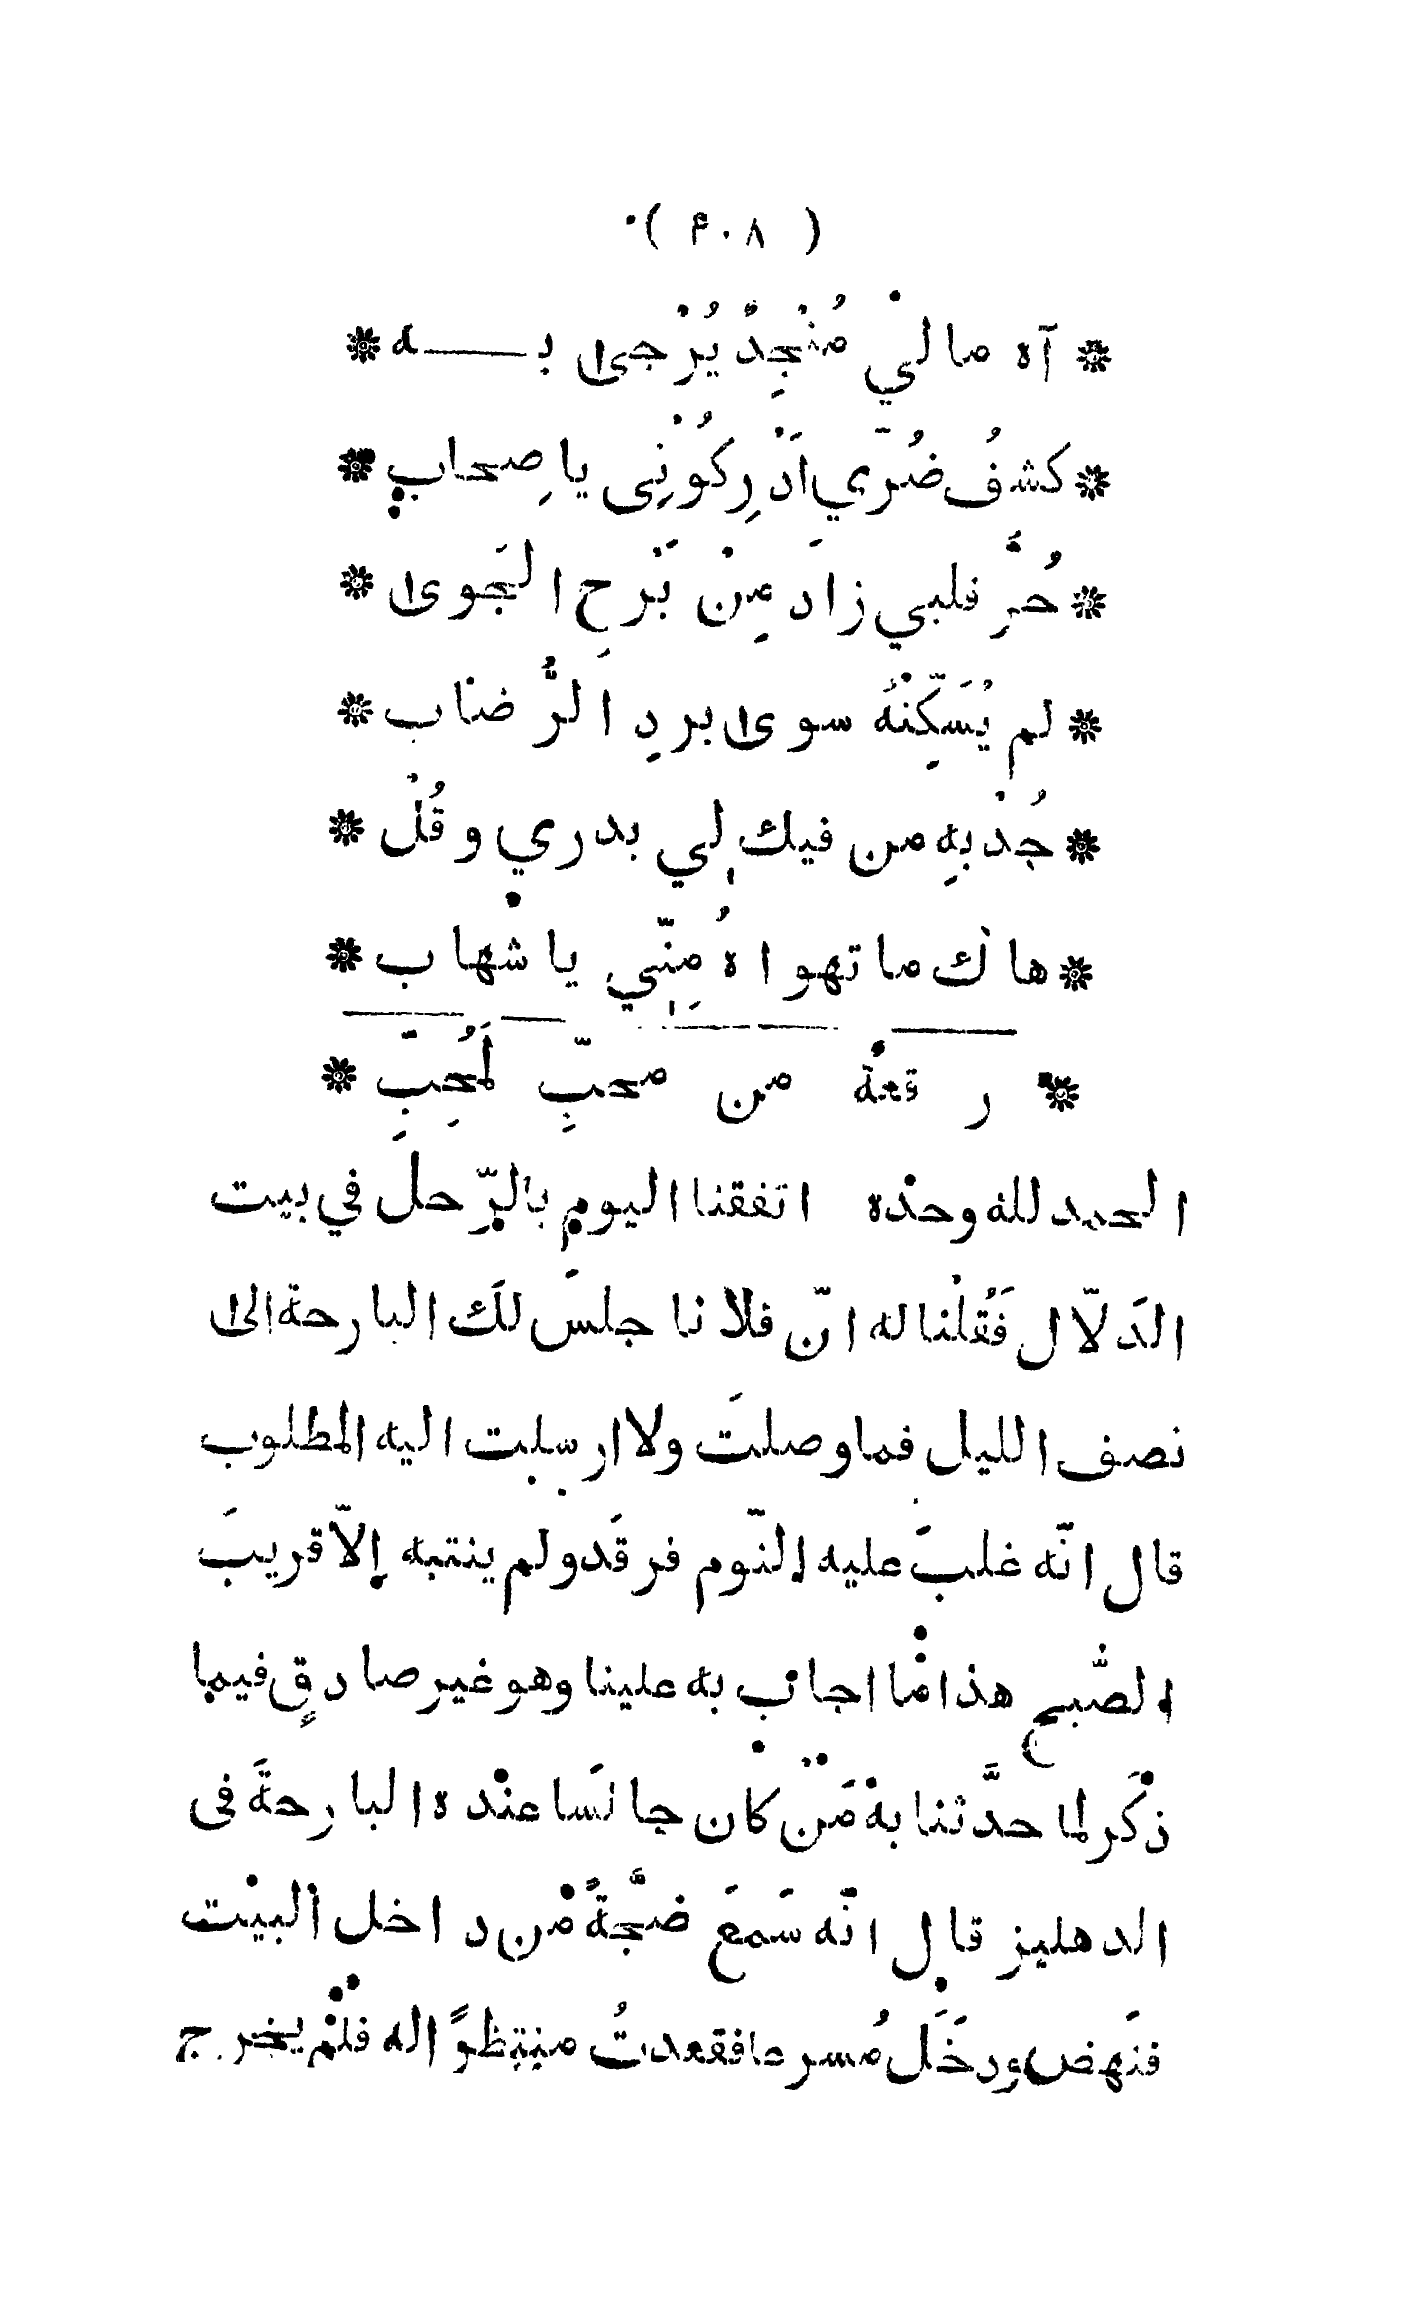 ( ۴۰۸ )
* آه مالي مُنْجِدٌ يُرْجىٰ بـــه *
* كشفُ ضُرّي اَدْرِكُوْنِى ياصِحابِ *
* حُرَّ قلبي زادَ مِنْ بَرْحِ الجَوىٰ *
* لم يُسَكِّنْهُ سوىٰ بردِ الرُّضاب *
* جُدْ بهِ من فيك لي بدري وقُلْ *
* هاك ما تهواهُ مِنّي يا شهاب *
* رقعة من محبِّ لمُحِبِّ *
الحمد لله وحده اتفقنا اليوم بالرّحل في بيت
الدَلّال فَقُلْنا له انّ فلانا جلسَ لكَ البارحة الىٰ
نصف الليل فما وصلتَ ولا ارسلت اليه المطلوب
قال انّه غلبَ عليه النّوم فرقَد ولم ينتبه إلّا قريبَ
الصُّبح هذا ما اجاب به علينا وهو غير صادقٍ فيما
ذكَر لما حدَّثنا به مَن كان جالسًا عنده البارحةَ فى
الدهليز قال انّه سَمعَ ضجَّةً من داخل البيت
فنَهض ودخَل مُسرعا فقعدتُ منتظرًا له فلم يخرج